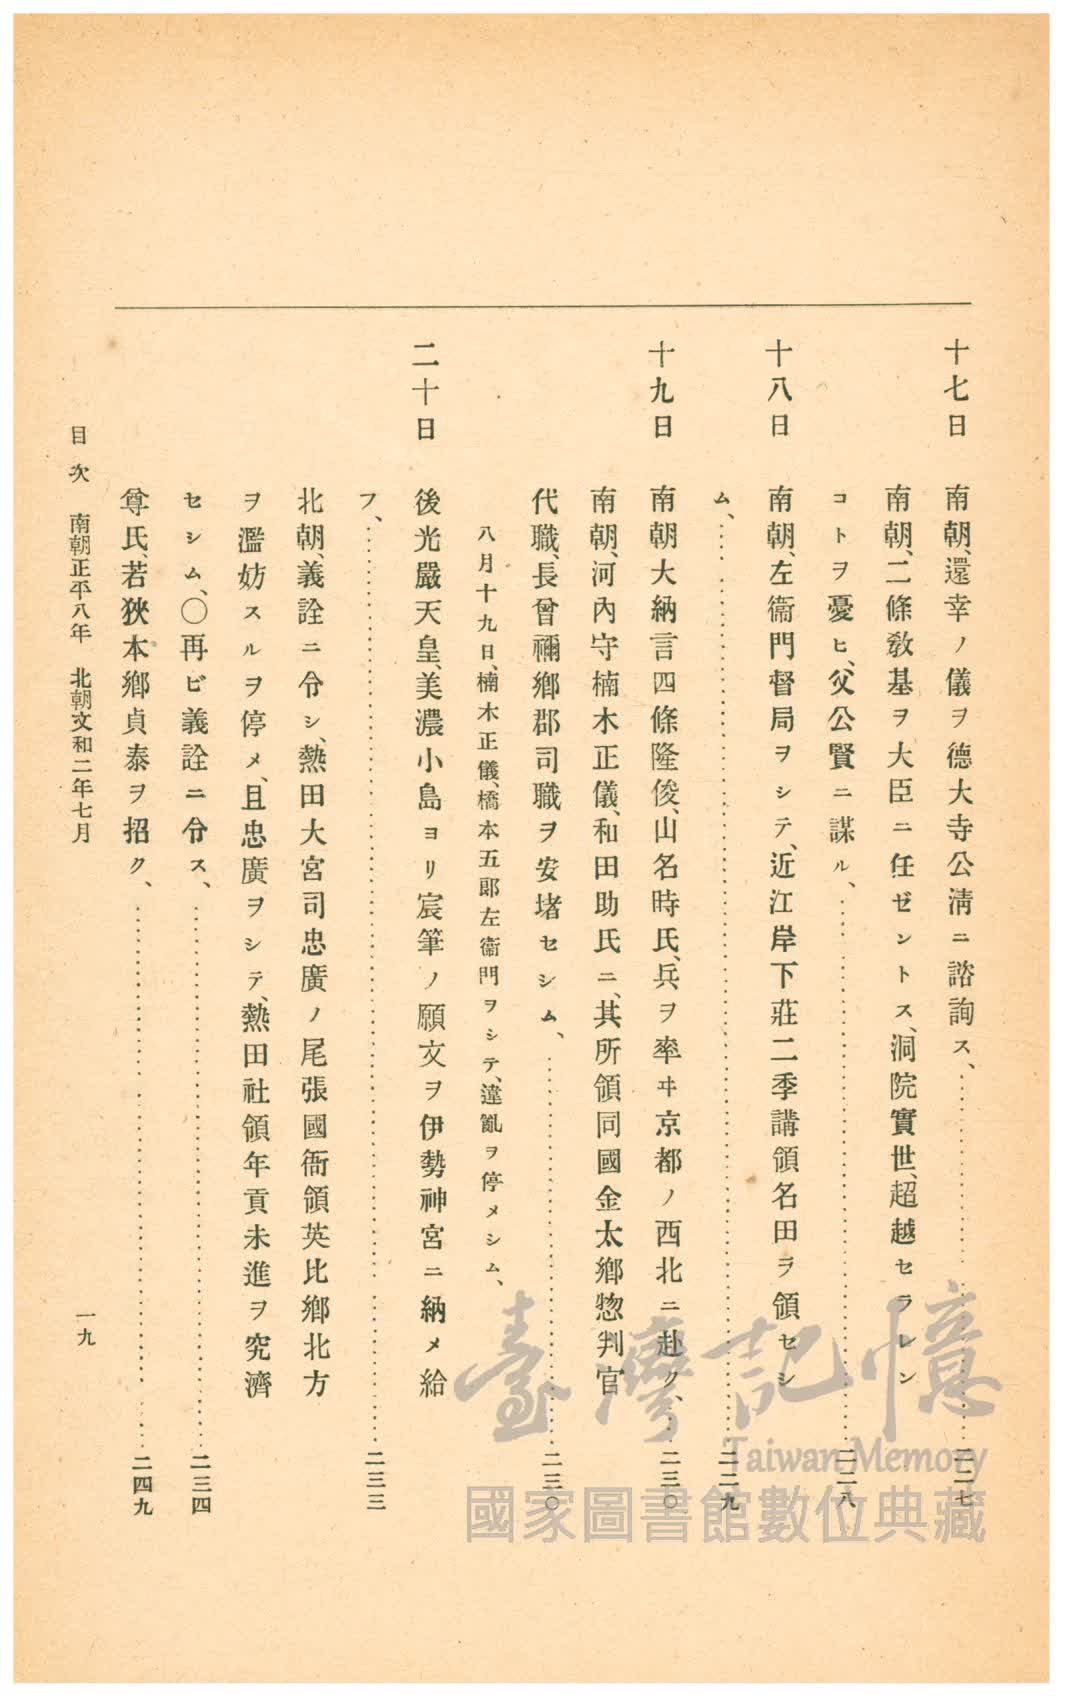 十七日 南朝、還幸ノ儀ヲ德大寺公淸ニ諮詢ス、…………二二七
南朝、二條敎基ヲ大臣ニ任ゼントス、洞院實世、超越セラレン
コトヲ憂ヒ、父公賢ニ謀ル、…………二二八
十八日 南朝、左衞門督局ヲシテ、近江岸下莊二季講領名田ヲ領セシ
ム、…………二二九
十九日 南朝大納言四條隆俊、山名時氏、兵ヲ率ヰ京都ノ西北ニ赴ク、…二三〇
南朝、河內守楠木正儀、和田助氏ニ、其所領同國金太鄕惣判官
代職、長曾禰鄕郡司職ヲ安堵セシム、…………二三〇
八月十九日、楠木正儀、橋本五郞左衞門ヲシテ、違亂ヲ停メシム、
二十日 後光嚴天皇、美濃小島ヨリ宸筆ノ願文ヲ伊勢神宮ニ納メ給
フ、…………二三三
北朝、義詮ニ令シ、熱田大宮司忠廣ノ尾張國衙領英比鄕北方
ヲ濫妨スルヲ停メ、且忠廣ヲシテ、熱田社領年貢未進ヲ究濟
セシム、〇再ビ義詮ニ令ス、…………二三四
尊氏、若狹本鄕貞泰ヲ招ク、…………二四九
目次 南朝正平八年 北朝文和二年七月 一九
臺灣記憶
Taiwan Memory
國家圖書館數位典藏